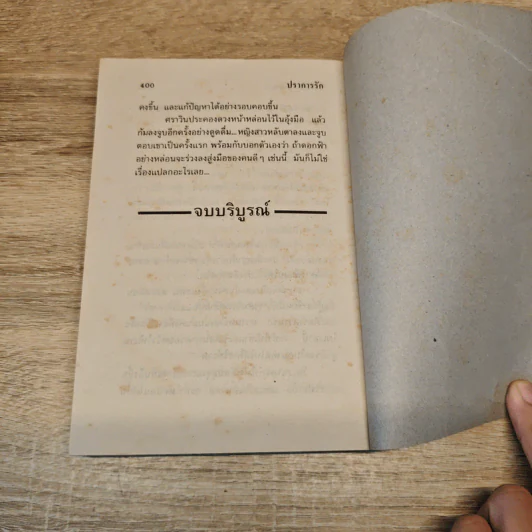 ๔๐๐ ปราการรัก
คงขึ้น และแก้ปัญหาได้อย่างรอบคอบขึ้น
ศราวินประคองดวงหน้าหล่อนไว้ในอุ้งมือ แล้ว
ก้มลงจูบอีกครั้งอย่างดูดดื่ม... หญิงสาวหลับตาลงและจูบ
ตอบเขาเป็นครั้งแรก พร้อมกับบอกตัวเองว่า ถ้าดอกฟ้า
อย่างหล่อนจะร่วงลงสู่มือของคนดีๆ เช่นนี้ มันก็ไม่ใช่
เรื่องแปลกอะไรเลย...
จบบริบูรณ์